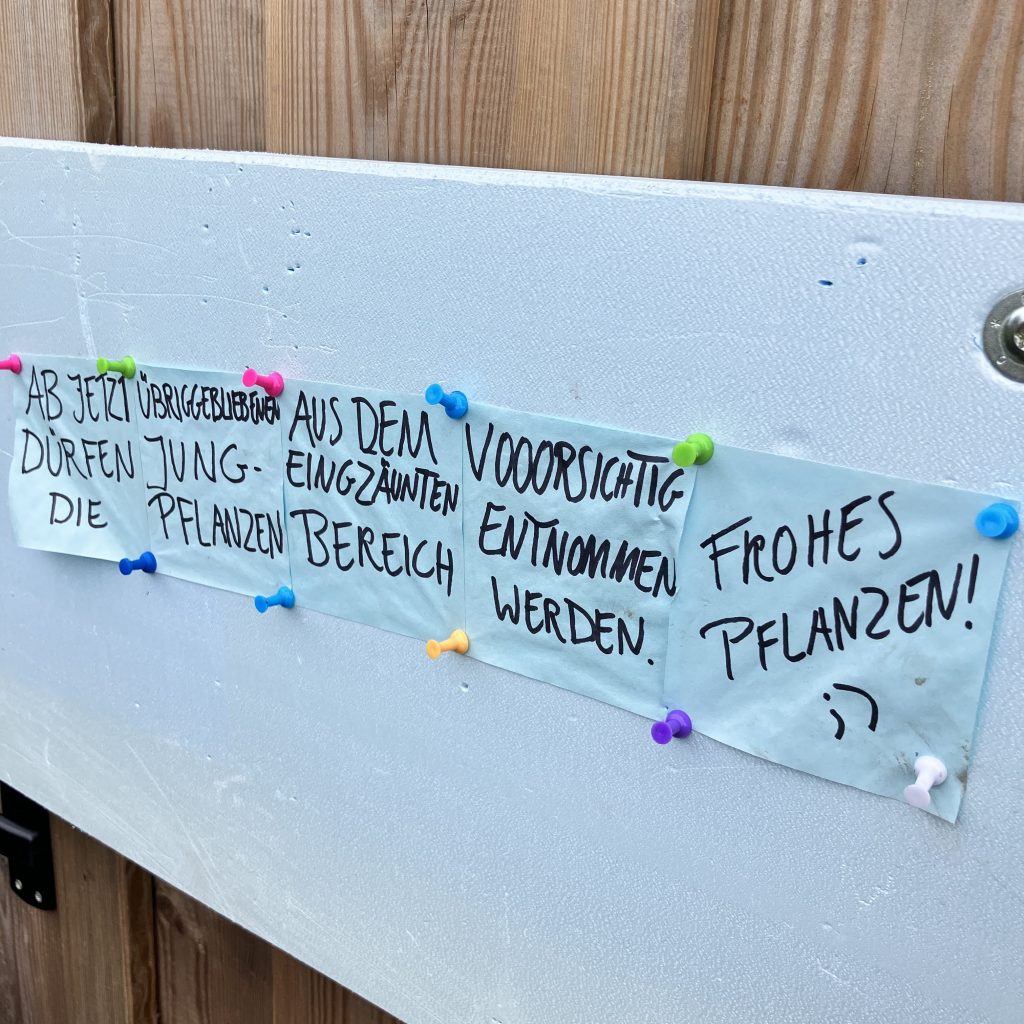 AB JETZT
DÜRFEN
DIE
ÜBRIGGEBLIEBENEN
JUNG-
PFLANZEN
AUS DEM
EINGZÄUNTEN
BEREICH
VOOORSICHTIG
ENTNOMMEN
WERDEN.
FROHES
PFLANZEN!
;)